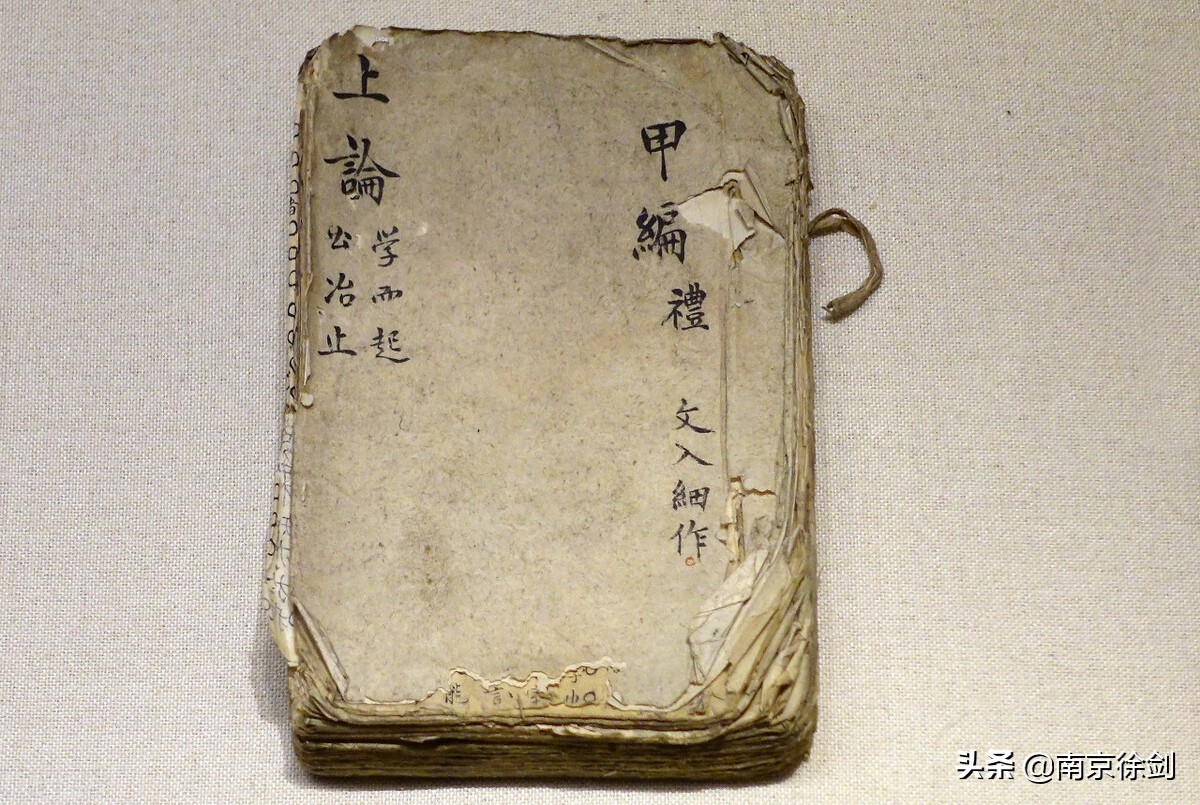 甲編禮 文入細作
上論
学而起
公冶止
头条 @南京徐剑